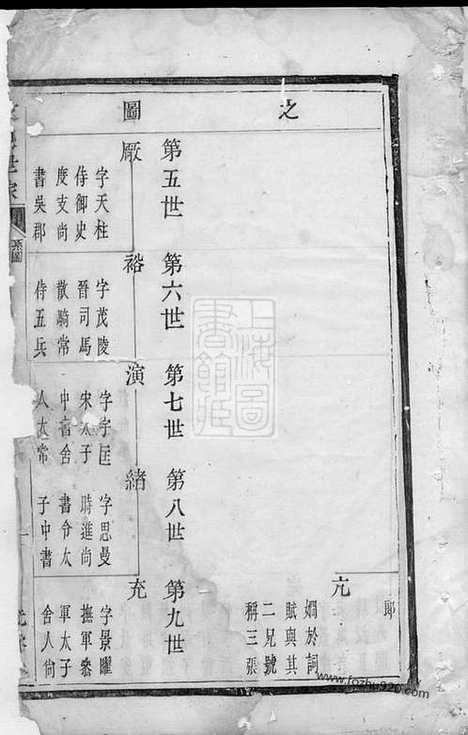 之圖
郎
亢
嫺於詞
賦與其
二兄號
稱三張
第五世
廞
字天柱
侍御史
度支尚
書吳郡
第六世
裕
字茂陵
晉司馬
散騎常
侍五兵
第七世
演
字宇匡
宋太子
中書舍
人太常
第八世
緒
字思曼
時進尚
書令太
子中書
第九世
充
字景曜
撫軍參
軍太子
舍人尚
世家
系圖
上海圖書館藏
www.fozhu920.com